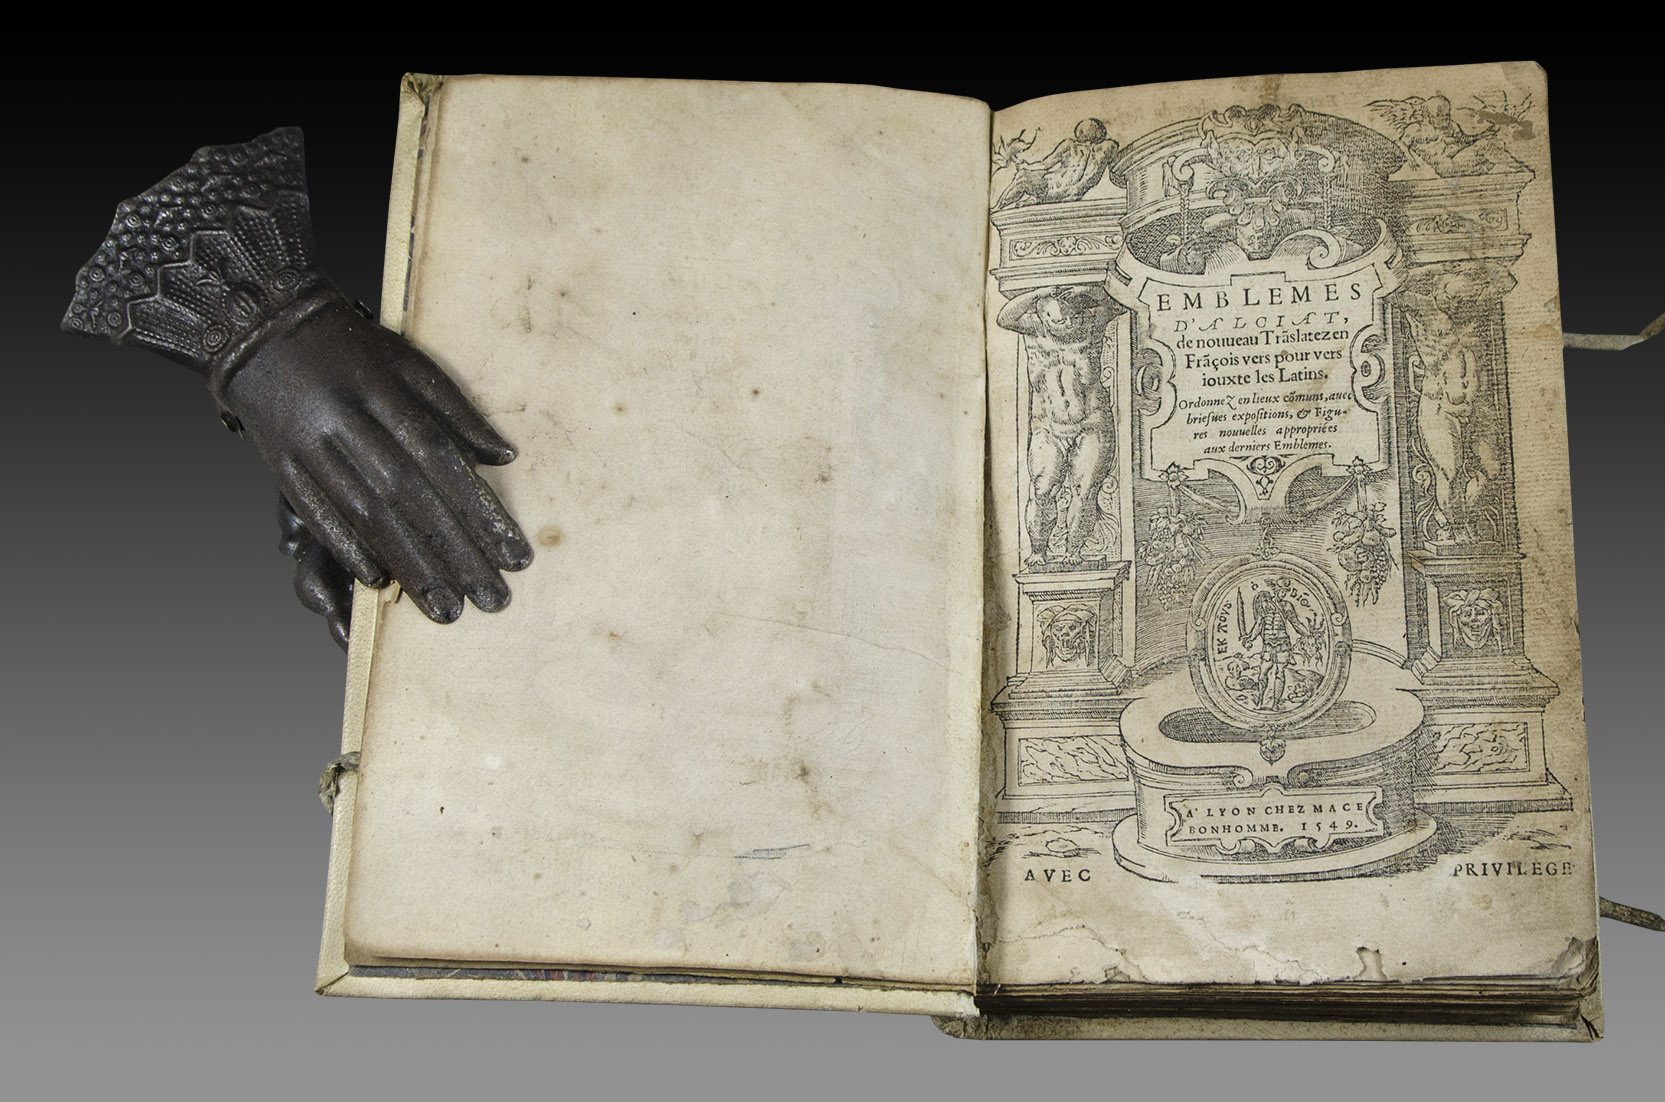 EMBLEMES
D'ALCIAT,
de nouueau Trãslatez en
Frãçois vers pour vers
iouxte les Latins.
Ordonnez en lieux cõmuns, auec
briefues expositions, & Figu-
res nouuelles appropriées
aux derniers Emblemes.
EK ΠΌΝΟΥ
A' LYON CHEZ MACE
BONHOMME. 1549.
AVEC PRIVILEGE